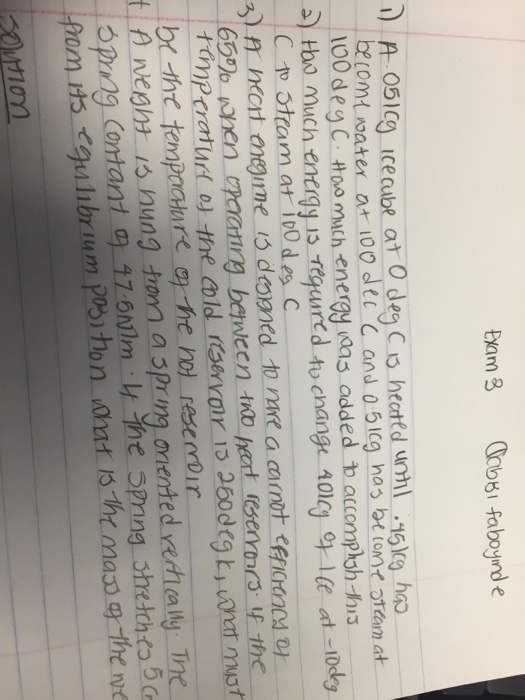 Exam 3
1) A .05kg icecube at 0 deg C is heated until .45kg has
become water at 100 dec C and 0.5kg has become steam at
100 deg C. How much energy was added to accomplish this
2) How much energy is required to change 40kg of Ice at -10deg
C to steam at 100 deg C
3) A heat enegine is desined to have a carnot efficiency of
65% when operating between two heat reservoirs. if the
temperature of the cold reservoir is 250deg k, what must
be the temprature of the hot reservoir
A weight is hung from a spring oriented vertically. The
spring Contant of 47.5N/m. If the spring stretches 5 c
from its equilibrium position what is the mass of the we
Solution